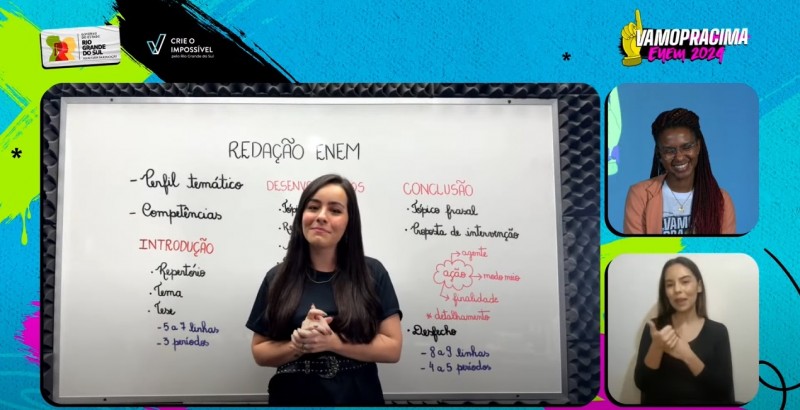 RIO
GRANDE
DO SUL
CRIE O
IMPOSSÍVEL
pelo Rio Grande do Sul
VAMOPRACIMA
ENEM 2024
REDAÇÃO ENEM
- Perfil temático
- Competências
INTRODUÇÃO
· Repertório
· Tema
· Tese
- 5 a 7 linhas
- 3 períodos
CONCLUSÃO
· Tópico frasal
· Proposta de intervenção
agente
ação
modo meio
finalidade
* detalhamento
· Desfecho
- 8 a 9 linhas
- 4 a 5 períodos